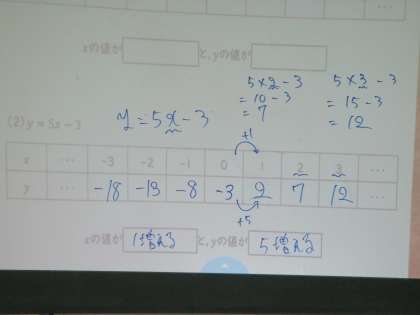 xの値が と,yの値が
5×2-3
=10-3
=7
5×3-3
=15-3
=12
(2) y=5x-3
y=5x-3
+1
x … -3 -2 -1 0 1 2 3 …
y … -18 -13 -8 -3 2 7 12 …
+5
xの値が 1増える と,yの値が 5増える